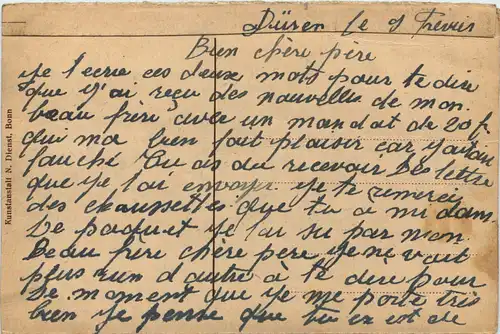 Düren le 9 Février
Bien chère père
Je t ecrie ces deux mots pour te dire
que j'ai reçu des nouvelles de mon
beau frère avec un mandat de 20 f
qui ma bien fait plaisir car j'aitai
fauché Tu as du recevoir des lettre
que je tai envoyé je te remerci
des chaussettes que tu a mi dans
le paquet je l'ai su par mon
Beau frère chère pere je ne voit
plus rien d'autre à te dire pour
le moment que je me porte très
bien je pense que tu en est de
Kunstanstalt N. Dienst, Bonn